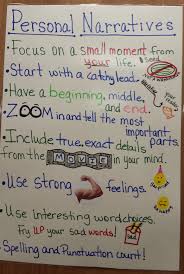 Personal Narratives
• Focus on a small moment from
your life. seed
• Start with a catchy lead.
• Have a beginning, middle,
and end.
• ZOOM in and tell the most
important parts.
• Include true, exact details
from the MOVIE in your mind.
• Use strong feelings.
• Use interesting word choices.
try UP your sad words!
• Spelling and Punctuation count!